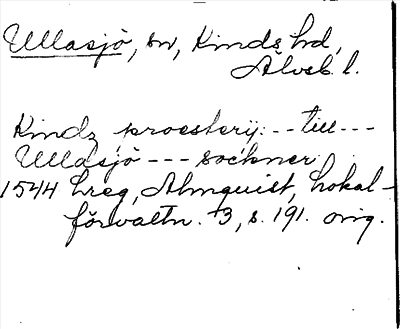 Ullasjö, sn, Kinds hd,
Älvsb. l.
Kindz proesterij: -- till ---
Ullasjö --- sockner
1544 hreg, Almquist, Lokal-
förvaltn. 3, s. 191. orig.